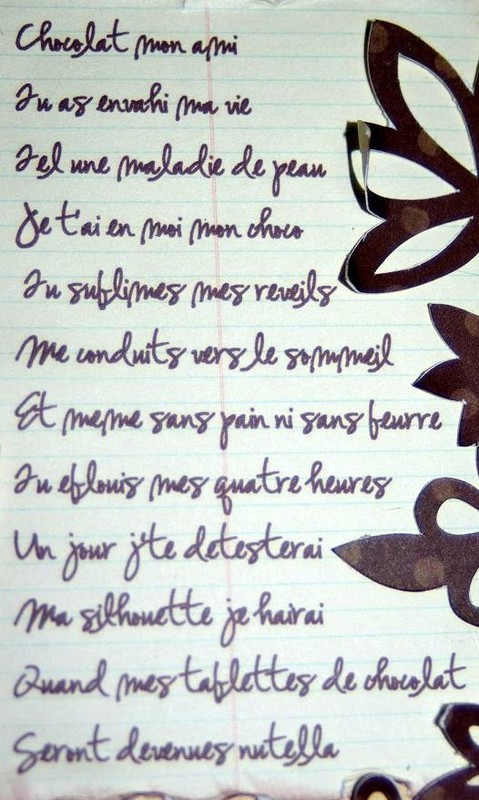 Chocolat mon ami
Tu as envahi ma vie
Tel une maladie de peau
Je t'ai en moi mon choco
Tu sublimes mes reveils
Me conduits vers le sommeil
Et meme sans pain ni sans beurre
Tu eblouis mes quatre heures
Un jour j'te detesterai
Ma silhouette je hairai
Quand mes tablettes de chocolat
Seront devenues nutella